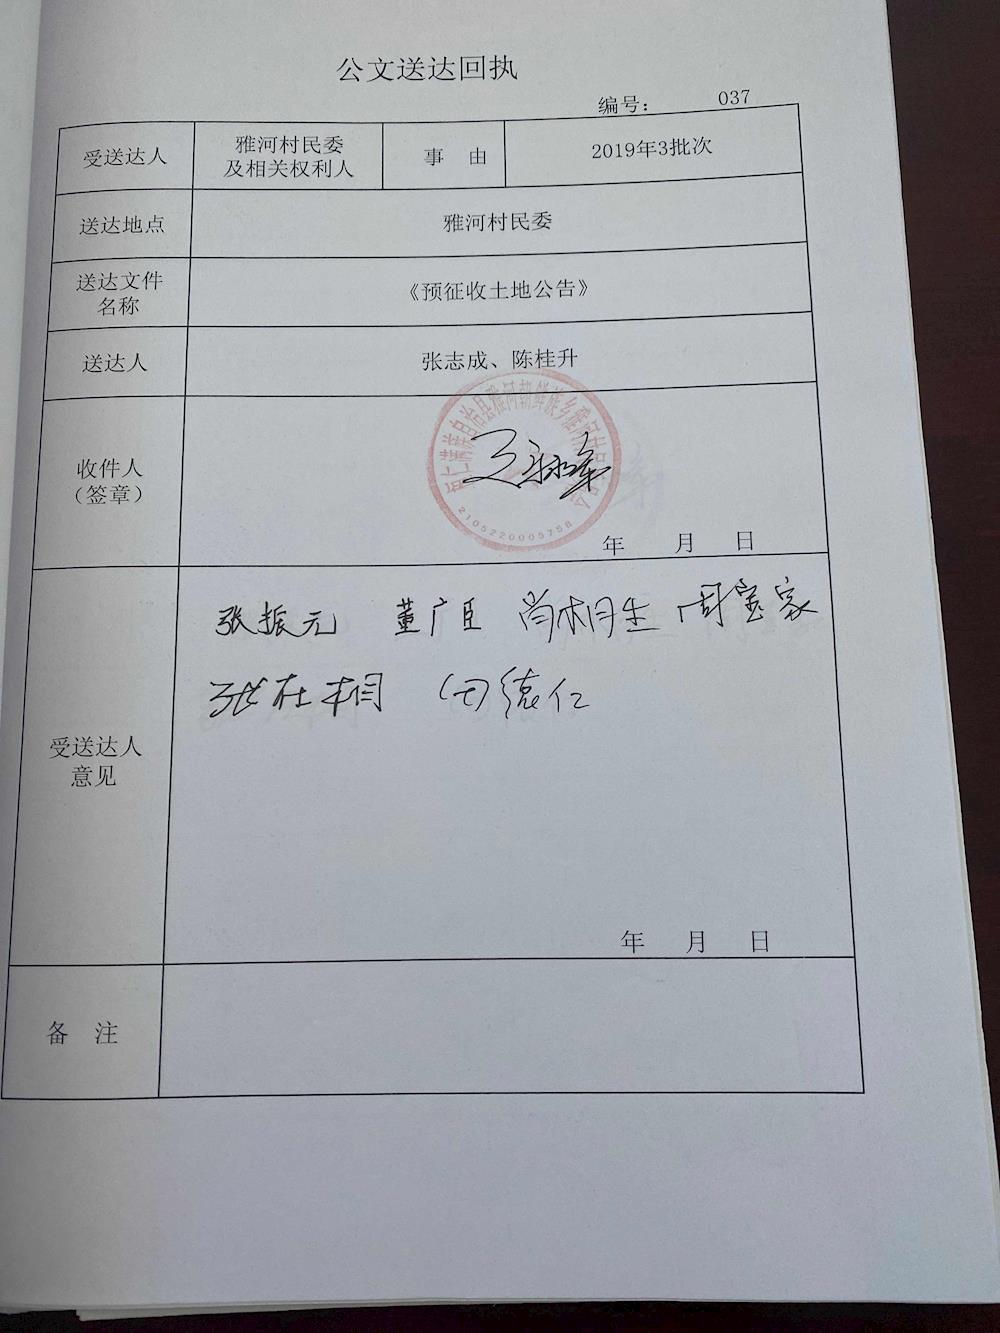 公文送达回执
编号： 037
受送达人
雅河村民委
及相关权利人
事 由
2019年3批次
送达地点
雅河村民委
送达文件
名称
《预征收土地公告》
送达人
张志成、陈桂升
收件人
（签章）
桓仁满族自治县雅河朝鲜族乡雅河村民委员会
2105220005758
年 月 日
受送达人
意见
张振元 董广臣 尚桐生 周宝家
张在相 田德仁
年 月 日
备 注